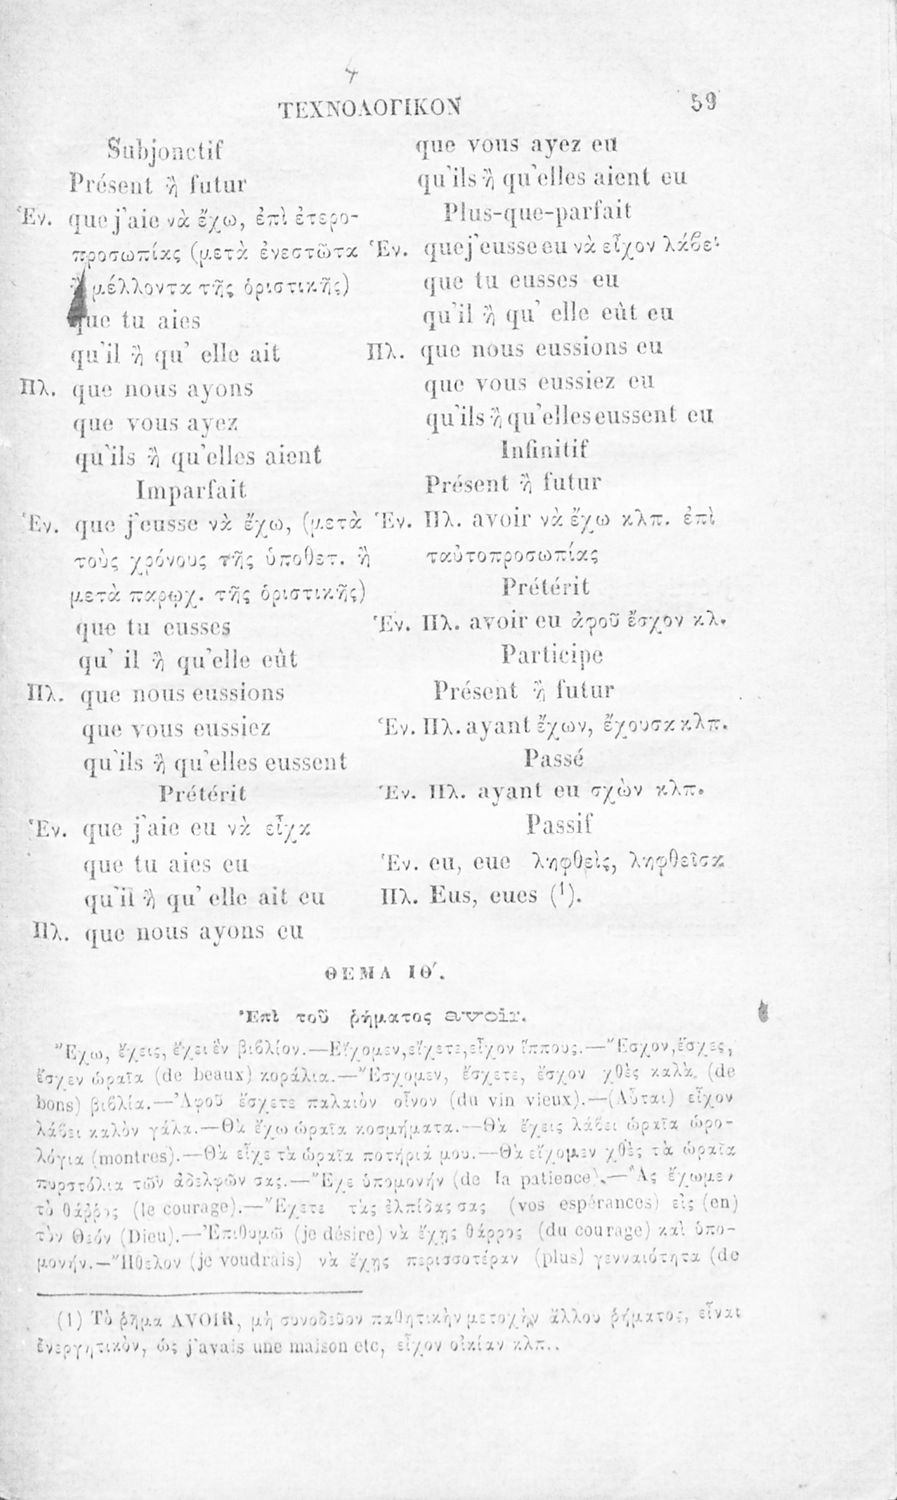 ΤΕΧΝΟΛΟΓΙΚΟΝ 59
Subjonctif
Présent ἢ futur
Ἑν. que j'aie νὰ ἔχω, ἐπὶ ἑτερο-
προσωπίας (μετὰ ἐνεστῶτα
ἢ μέλλοντα τῆς ὁριστικῆς)
que tu aies
qu'il ἢ qu' elle ait
Πλ. que nous ayons
que vous ayez
qu'ils ἢ qu'elles aient
Imparfait
Ἑν. que j'eusse νὰ ἔχω, (μετὰ
τοὺς χρόνους τῆς ὑποθετ. ἢ
μετὰ παρῳχ. τῆς ὁριστικῆς)
que tu eusses
qu' il ἢ qu'elle eût
Πλ. que nous eussions
que vous eussiez
qu'ils ἢ qu'elles eussent
Prétérit
Ἑν. que j'aie eu νὰ εἶχα
que tu aies eu
qu'il ἢ qu' elle ait eu
Πλ. que nous ayons eu
que vous ayez eu
qu'ils ἢ qu'elles aient eu
Plus-que-parfait
Ἑν. que j'eusse eu νὰ εἶχον λάβει·
que tu eusses eu
qu'il ἢ qu' elle eût eu
Πλ. que nous eussions eu
que vous eussiez eu
qu'ils ἢ qu'elles eussent eu
Infinitif
Présent ἢ futur
Ἑν. Πλ. avoir νὰ ἔχω κλπ. ἐπὶ
ταὐτοπροσωπίας
Prétérit
Ἑν. Πλ. avoir eu ἀφοῦ ἔσχον κλ.
Participe
Présent ἢ futur
Ἑν. Πλ. ayant ἔχων, ἔχουσα κλπ.
Passé
Ἑν. Πλ. ayant eu σχὼν κλπ.
Passif
Ἑν. eu, eue ληφθεὶς, ληφθεῖσα
Πλ. Eus, eues (1).
ΘΕΜΑ ΙΘ΄.
Ἐπὶ τοῦ ῥήματος avoir.
Ἔχω, ἔχεις, ἔχει ἓν βιβλίον.—Εἴχομεν, εἴχετε, εἶχον ἵππους.—Ἔσχον, ἔσχες,
ἔσχεν ὡραῖα (de beaux) κοράλια.—Ἔσχομεν, ἔσχετε, ἔσχον χθὲς καλὰ (de
bons) βιβλία.—Ἀφοῦ ἔσχετε παλαιὸν οἶνον (du vin vieux).—(Αὗται) εἶχον
λάβει καλὸν γάλα.—Θὰ ἔχω ὡραῖα κοσμήματα.—Θὰ ἔχεις λάβει ὡραῖα ὡρο-
λόγια (montres).—Θὰ εἶχε τὰ ὡραῖα ποτήριά μου.—Θὰ εἴχομεν χθὲς τὰ ὡραῖα
πυρστόλια τῶν ἀδελφῶν σας.—Ἔχε ὑπομονήν (de la patience).—Ἂς ἔχωμεν
τὸ θάῤῥος (le courage).—Ἔχετε τὰς ἐλπίδας σας (vos espérances) εἰς (en)
τὸν Θεόν (Dieu).—Ἐπιθυμῶ (je désire) νὰ ἔχῃς θάρρος (du courage) καὶ ὑπο-
μονήν.—Ἤθελον (je voudrais) νὰ ἔχῃς περισσοτέραν (plus) γενναιότητα (de
(1) Τὸ ῥῆμα AVOIR, μὴ συνοδεῦον παθητικὴν μετοχὴν ἄλλου ῥήματος, εἶναι
ἐνεργητικὸν, ὡς j'avais une maison etc, εἶχον οἰκίαν κλπ..